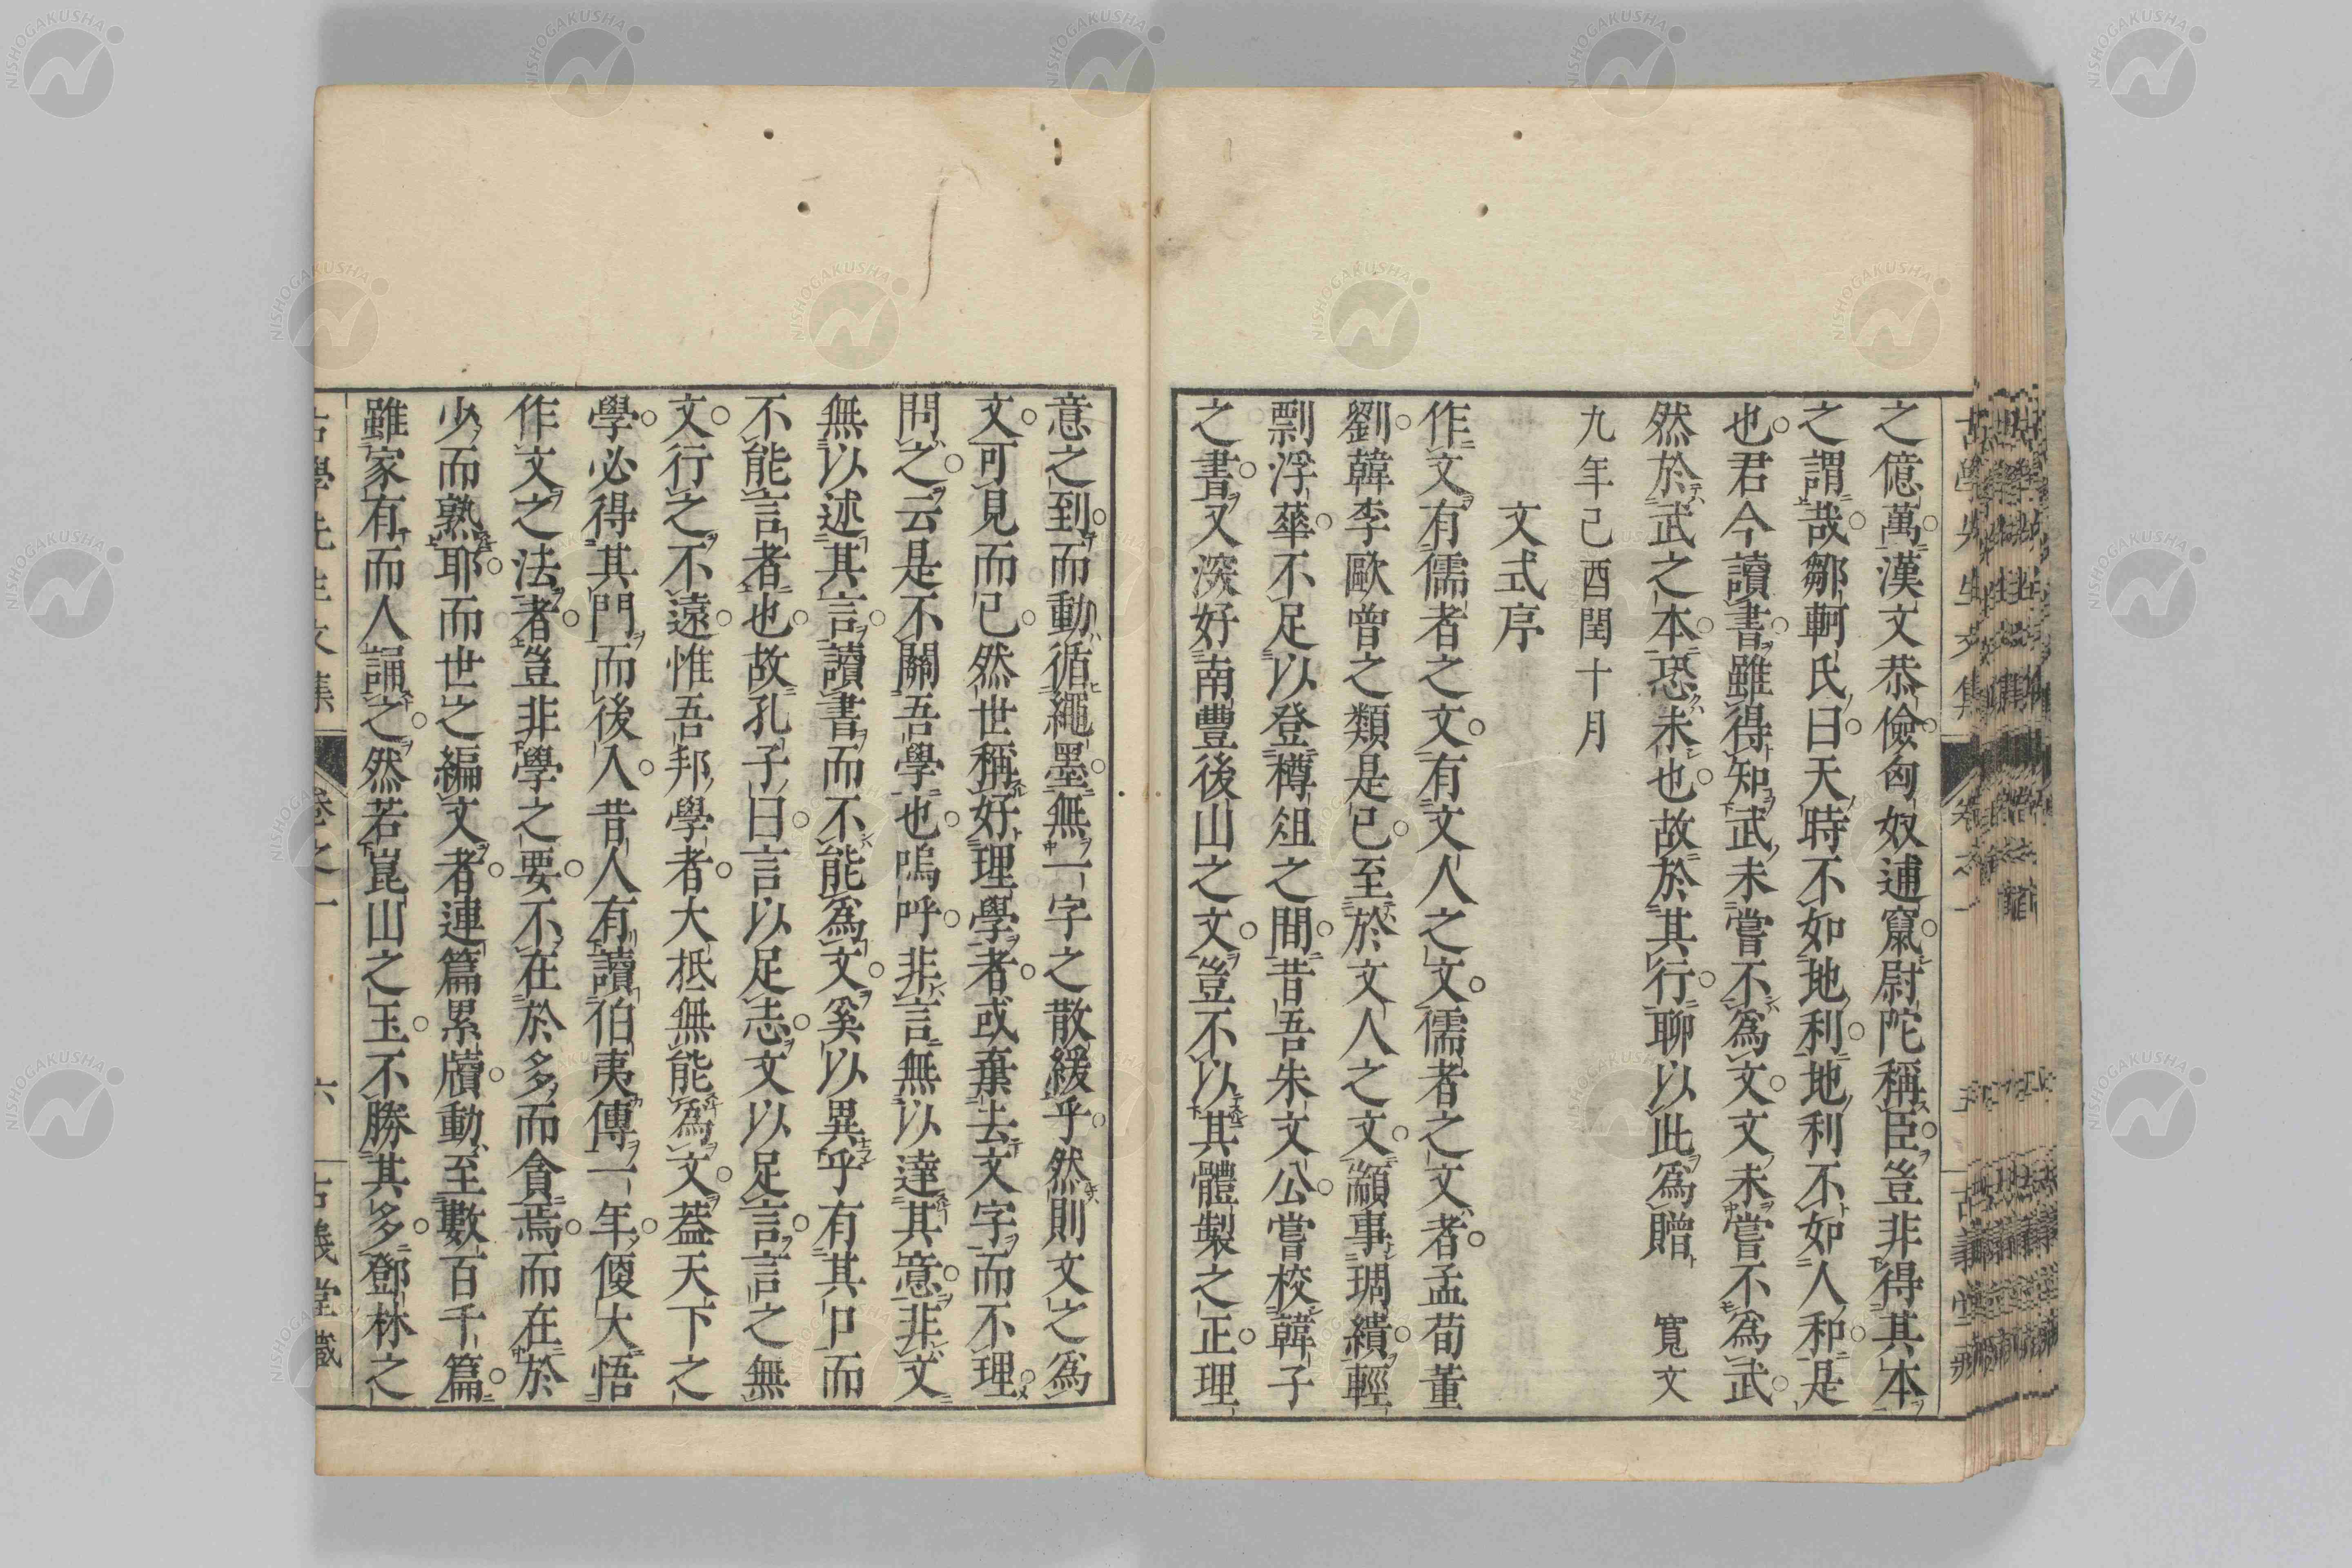 之億萬。漢文恭儉。匈奴逋竄。尉陀稱臣。豈非得其本
之謂哉。鄒軻氏曰。天時不如地利。地利不如人和。是
也。君今讀書。雖得知武。未嘗不爲文。文未嘗不爲武。
然於武之本。恐未也。故於其行。聊以此爲贈 寬文
九年己酉閏十月
文式序
作文有儒者之文。有文人之文。儒者之文者。孟荀董
劉。韓李歐曾之類是已。至於文人之文。纈事琱繢。輕
剽浮華。不足以登樽俎之間。昔吾朱文公。嘗校韓子
之書。又深好南豐後山之文。豈不以其體製之正。理
意之到。而動循繩墨。無一字之散緩乎。然則文之爲
文。可見而已。然世稱好理學者。或棄去文字而不理。
問之。云是不關吾學也。嗚呼。非言無以達其意。非文
無以述其言。讀書而不能爲文。奚以異乎有其口而
不能言者也。故孔子曰。言以足志。文以足言。言之無
文。行之不遠。惟吾邦學者。大抵無能爲文。蓋天下之
學。必得其門而後入。昔人有讀伯夷傳一年。便大悟
作文之法者。豈非學之要。不在於多而貪焉。而在於
少而熟耶。而世之編文者。連篇累牘。動至數百千篇。
雖家有而人誦之。然若崑山之玉。不勝其多。鄧林之
古學先生文集 卷之一 六 古義堂藏
NISHOGAKUSHA